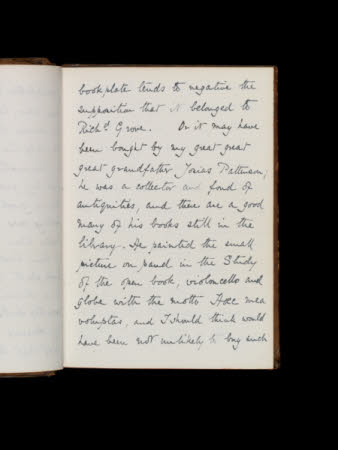 bookplate tends to negative the
supposition that it belonged to
Richd Grove. Or it may have
been bought by my great great
great grandfather Jonas Patteson;
he was a collector and fond of
antiquities, and there are a good
many of his books still in the
library. He painted the small
picture on panel in the Study
of the open book, violoncello and
globe with the motto Haec mea
voluptas, and I should think would
have been not unlikely to buy such